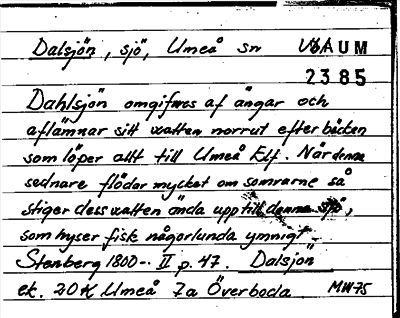 Dalsjön, sjö, Umeå sn VBAUM
2385
Dahlsjön omgifwes af ängar och
aflämnar sitt watten norrut efter bäcken
som löper allt till Umeå Elf. När denna
sednare flödar mycket om somrarne så
stiger dess watten ända upp till denna sjö,
som hyser fisk någorlunda ymnigt.
Stenberg 1800-. II p. 47. Dalsjön
ek. 20K Umeå 7a Överboda MW-75